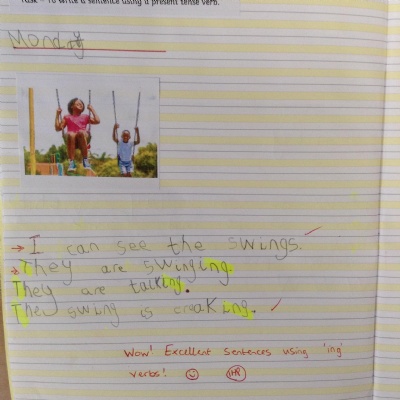 Task - To write a sentence using a present tense verb.
Monday
→ I can see the swings.
→ They are swinging.
They are talking.
The swing is creaking.
Wow! Excellent sentences using 'ing'
verbs!